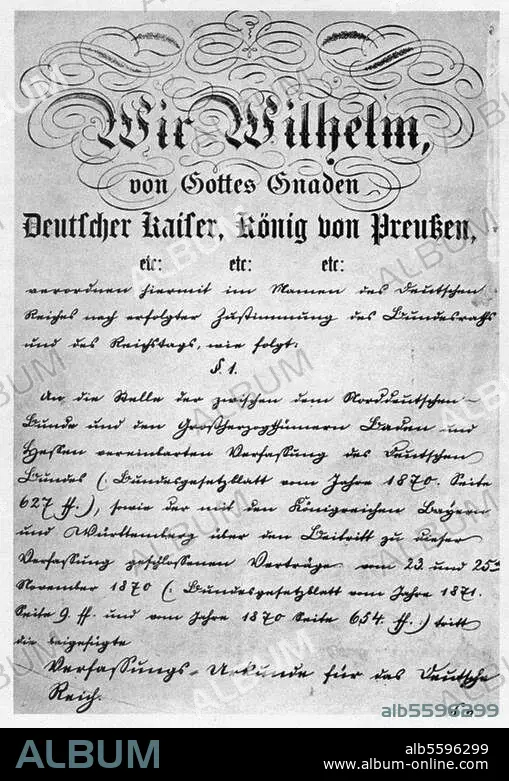 Wir Wilhelm,
von Gottes Gnaden
Deutscher Kaiser, König von Preußen,
etc: etc: etc:
verordnen hiermit im Namen des Deutschen
Reiches nach erfolgter Zustimmung des Bundesraths
und des Reichstags, wie folgt:
§. 1.
An die Stelle der zwischen dem Norddeutschen
Bunde und den Großherzogthümern Baden und
Hessen vereinbarten Verfassung des Deutschen
Bundes (Bundesgesetzblatt vom Jahre 1870. Seite
627 ff.), sowie der mit den Königreichen Bayern
und Württemberg über den Beitritt zu dieser
Verfassung geschlossenen Verträge vom 23. und 25ten
November 1870 (Bundesgesetzblatt vom Jahre 1871.
Seite 9. ff. und vom Jahre 1870 Seite 654. ff.) tritt
die beigefügte
Verfassungs-Urkunde für das Deutsche
Reich.
alb5596299
ALBUM
alb5596299
www.album-online.com